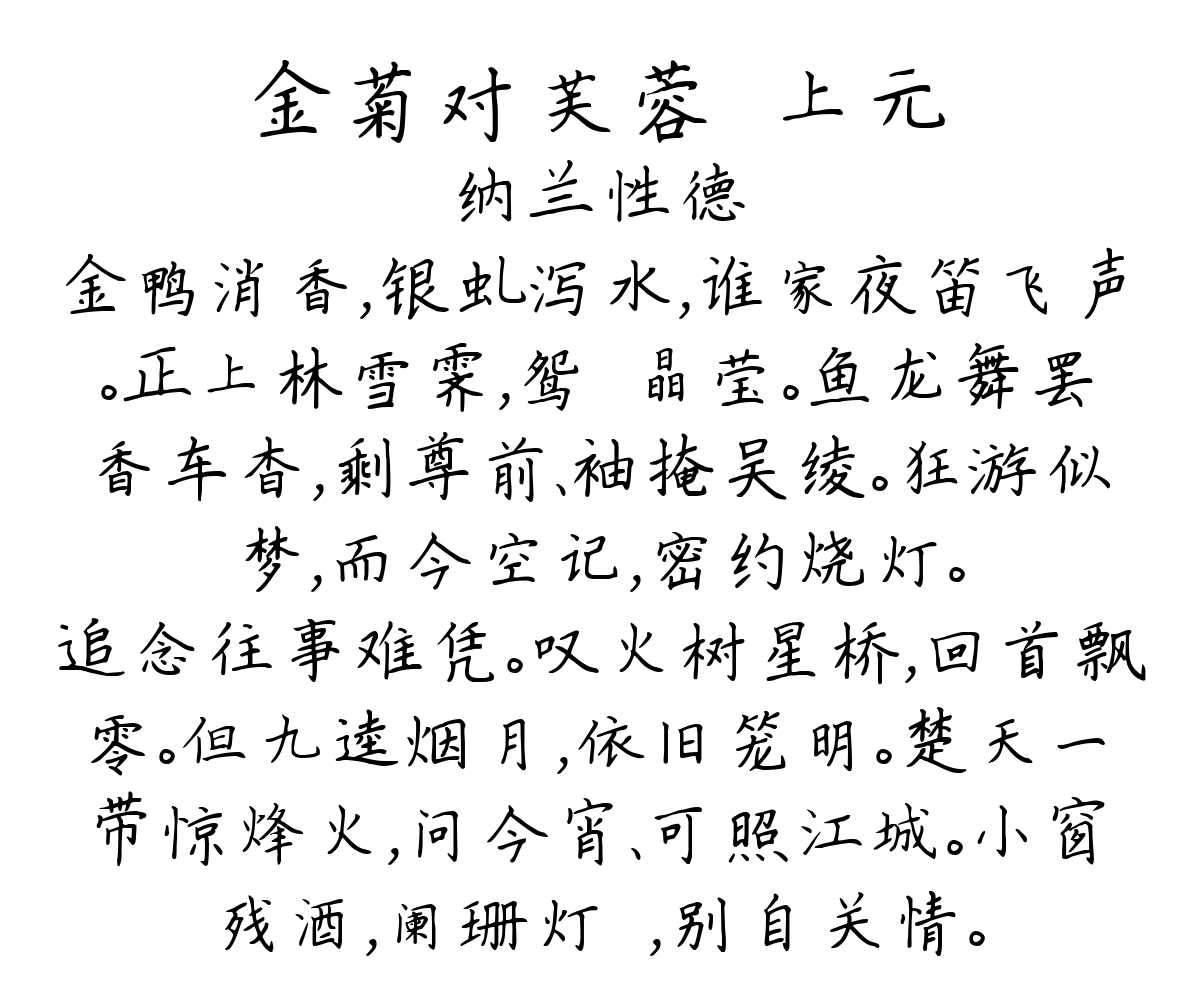 金菊对芙蓉 上元
纳兰性德
金鸭消香,银虬泻水,谁家夜笛飞声
。正上林雪霁,鸳 晶莹。鱼龙舞罢
香车杳,剩尊前、袖掩吴绫。狂游似
梦,而今空记,密约烧灯。
追念往事难凭。叹火树星桥,回首飘
零。但九逵烟月,依旧笼明。楚天一
带惊烽火,问今宵、可照江城。小窗
残酒,阑珊灯 ,别自关情。